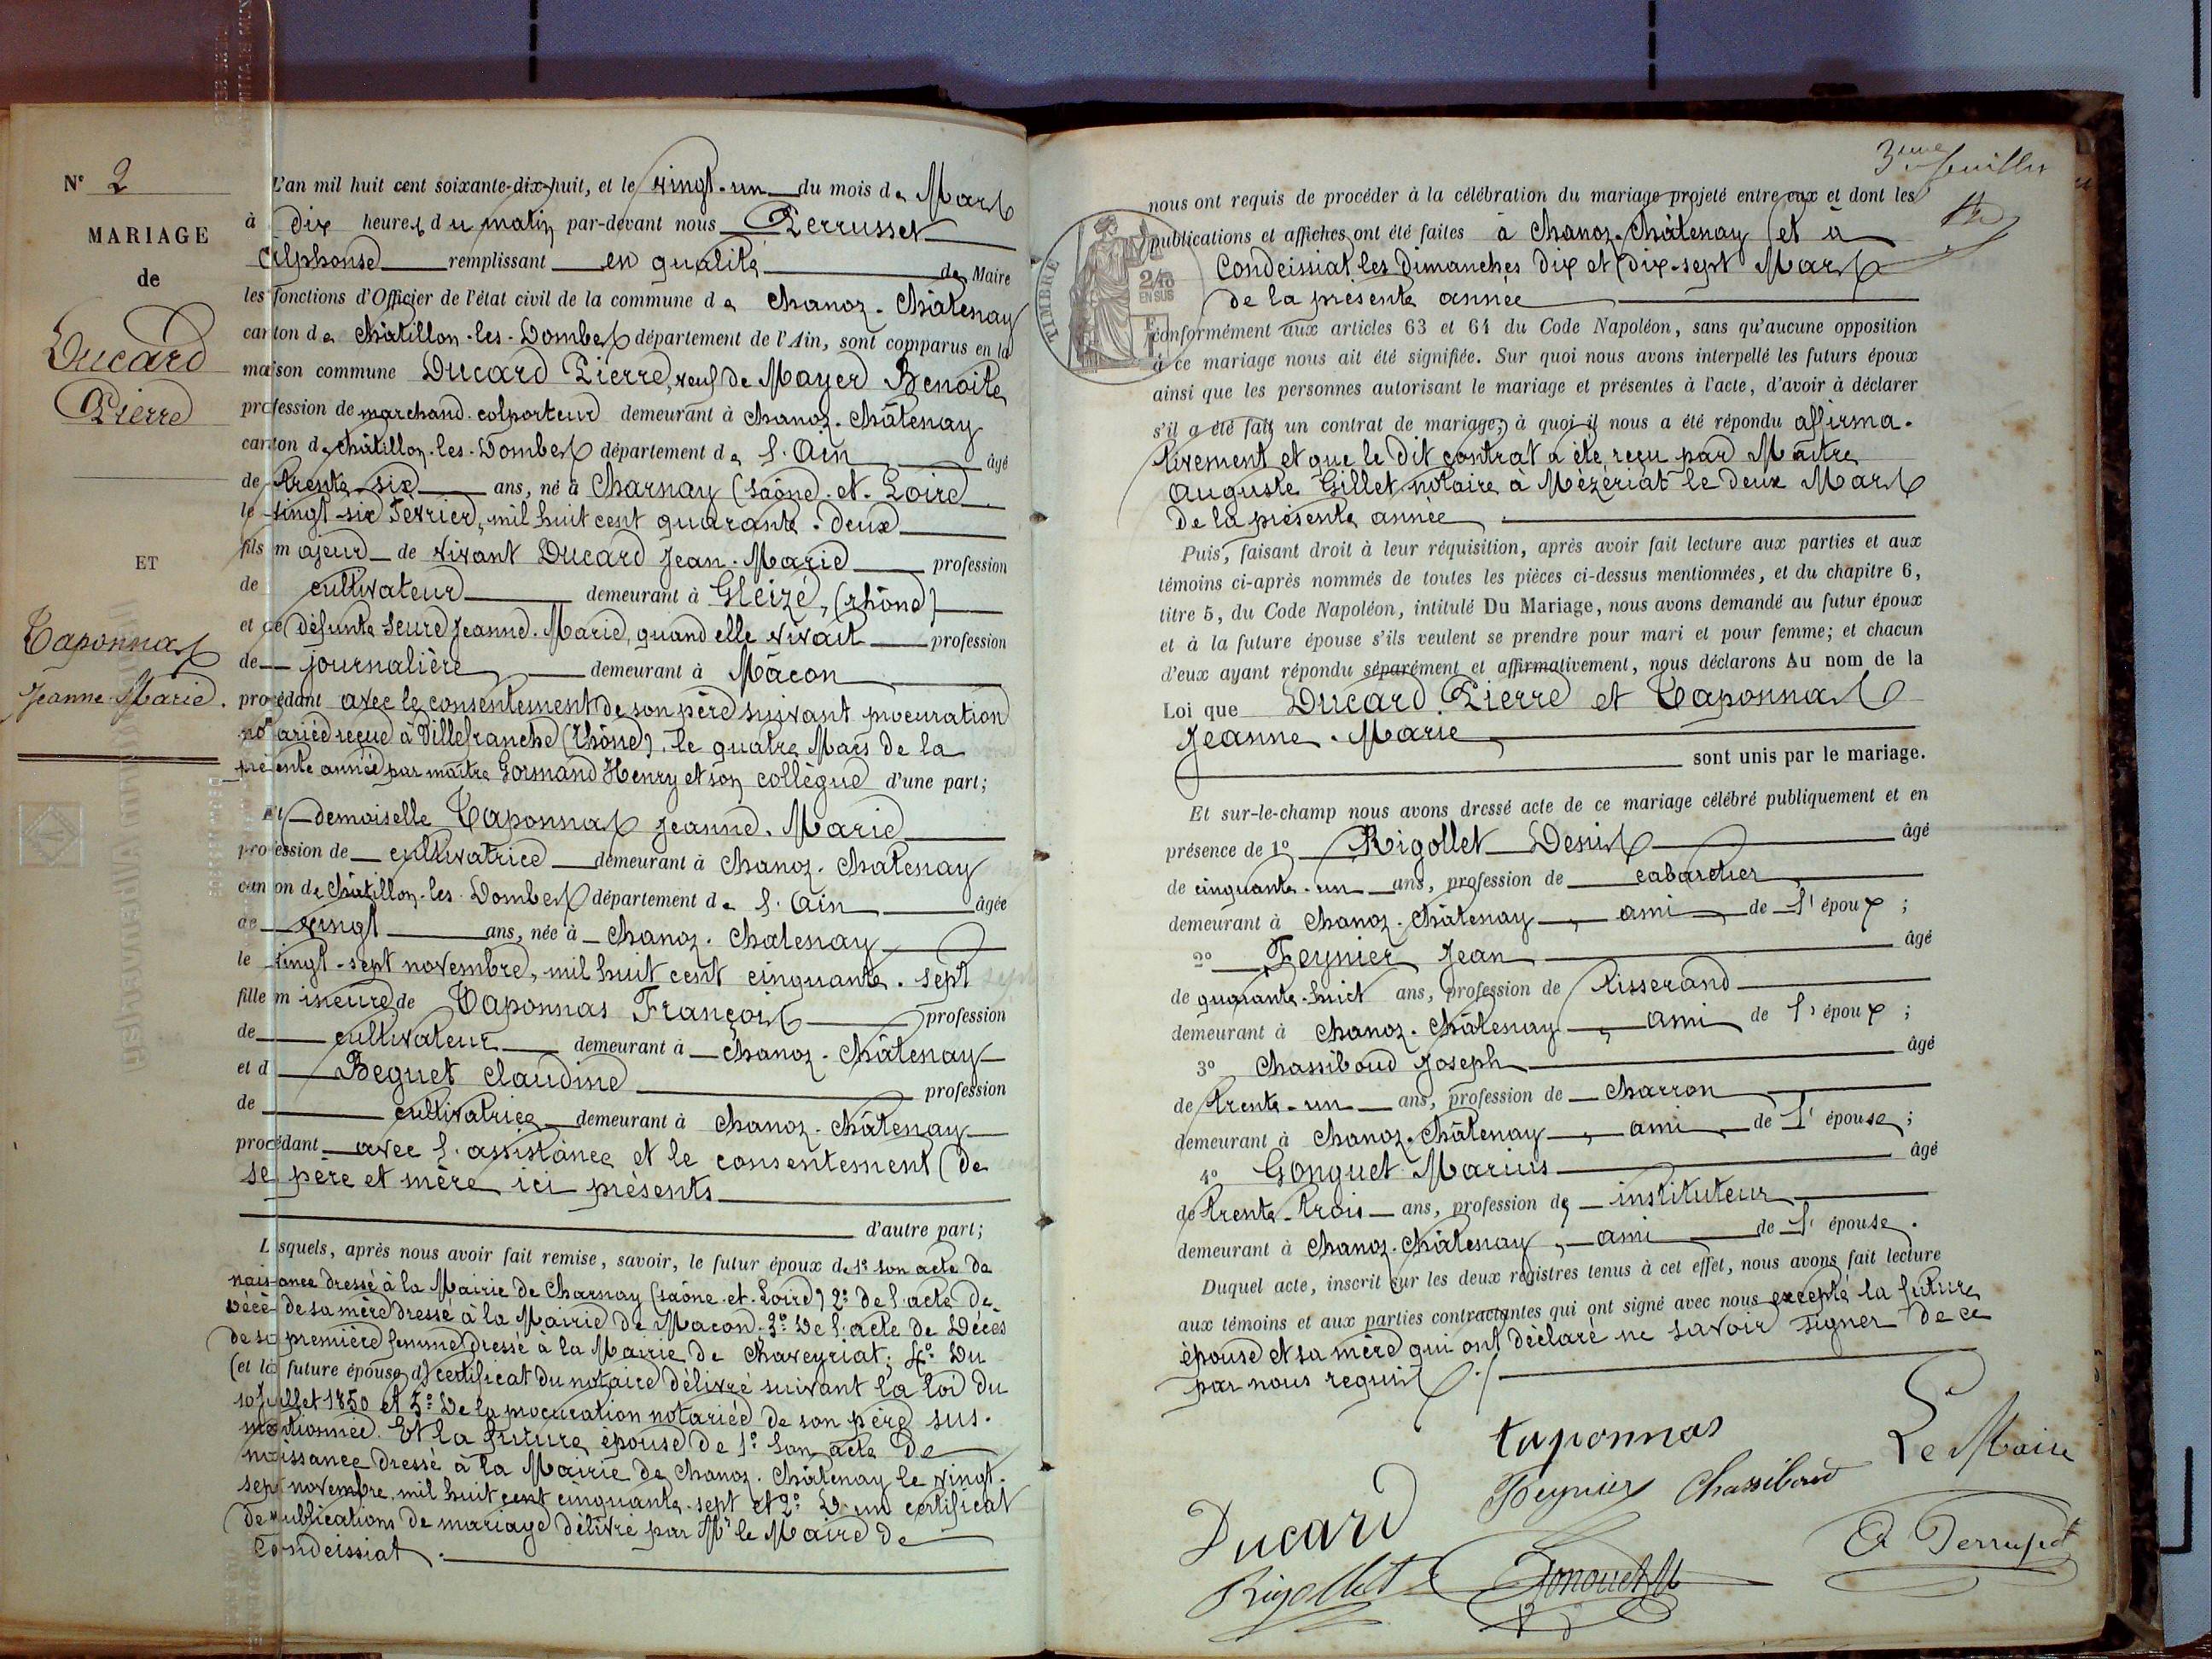 N° 2
MARIAGE
de
Ducard
Pierre
ET
Taponnas
Jeanne-Marie.
L'an mil huit cent soixante-dix-huit, et le vingt-un du mois de Mars
à dix heures du matin par-devant nous Perrusset
Alphonse remplissant en qualité de Maire
les fonctions d'Officier de l'état civil de la commune de Chanoz-Châtenay
canton de Châtillon-les-Dombes département de l'Ain, sont comparus en la
maison commune Ducard Pierre, veuf de Mayer Benoite
profession de marchand colporteur demeurant à Chanoz-Châtenay
canton de Châtillon-les-Dombes département de l'Ain âgé
de trente-six ans, né à Charnay (Saône-et-Loire
le vingt-six Février, mil huit cent quarante-deux
fils majeur de vivant Ducard Jean-Marie profession
de cultivateur demeurant à Gleizé, (rhône)
et de défunte Seure Jeanne-Marie, quand elle vivait profession
de journalière demeurant à Mâcon
procédant avec le consentement de son père suivant procuration
notariée reçue à Villefranche (Rhône), le quatre Mars de la
présente année par maître Gormand Henry et son collègue d'une part;
Et demoiselle Taponnas Jeanne-Marie
profession de cultivatrice demeurant à Chanoz-Chatenay
canton de Châtillon-les-Dombes département de l'Ain âgée
de vingt ans, née à Chanoz-Chatenay
le vingt-sept novembre, mil huit cent cinquante-sept
fille mineure de Taponnas François profession
de cultivateur demeurant à Chanoz-Châtenay
et d Beguet Claudine profession
de cultivatrice demeurant à Chanoz-Châtenay
procédant avec l'assistance et le consentement de
se père et mère ici présents
d'autre part;
Lesquels, après nous avoir fait remise, savoir, le futur époux de 1° son acte de
naissance dressé à la Mairie de Charnay (Saône-et-Loire) 2° de l'acte de
décè de sa mère dressé à la Mairie de Macon. 3° De l'acte de Décès
de sa première femme dressé à la Mairie de Chaveyriat; 4° Du
(et la future épouse d) certificat du notaire délivré suivant la loi du
10 Juillet 1850 et 5° De la procuration notariée de son père sus-
mentionnée. Et la future épouse de 1° Son acte de
naissance dressé à la Mairie de Chanoz-Châtenay le vingt-
sept novembre, mil huit cent cinquante-sept et 2° D'un certificat
de publications de mariage délivré par Mr le Maire de
Condeissiat.
3eme feuillet
nous ont requis de procéder à la célébration du mariage projeté entre eux et dont les
publications et affiches ont été faites à Chanoz-Châtenay et à
Condeissiat les Dimanches dix et dix-sept Mars
de la présente année
TIMBRE
2/10
EN SUS
conformément aux articles 63 et 64 du Code Napoléon, sans qu'aucune opposition
à ce mariage nous ait été signifiée. Sur quoi nous avons interpellé les futurs époux
ainsi que les personnes autorisant le mariage et présentes à l'acte, d'avoir à déclarer
s'il a été fait un contrat de mariage; à quoi il nous a été répondu affirma-
tivement et que le dit contrat a été reçu par Maître
Auguste Gillet notaire à Mézériat le deux Mars
de la présente année.
Puis, faisant droit à leur réquisition, après avoir fait lecture aux parties et aux
témoins ci-après nommés de toutes les pièces ci-dessus mentionnées, et du chapitre 6,
titre 5, du Code Napoléon, intitulé Du Mariage, nous avons demandé au futur époux
et à la future épouse s'ils veulent se prendre pour mari et pour femme; et chacun
d'eux ayant répondu séparément et affirmativement, nous déclarons Au nom de la
Loi que Ducard Pierre et Taponnas
Jeanne-Marie
sont unis par le mariage.
Et sur-le-champ nous avons dressé acte de ce mariage célébré publiquement et en
présence de 1° Rigollet Denis âgé
de cinquante-un ans, profession de cabaretier
demeurant à Chanoz-Châtenay, ami de l'époux;
2° Feynier Jean âgé
de quarante-huit ans, profession de tisserand
demeurant à Chanoz-Châtenay, ami de l'époux;
3° Chassiboud Joseph âgé
de trente-un ans, profession de Charron
demeurant à Chanoz-Châtenay, ami de l'épouse;
4° Gonguet Marius âgé
de trente-trois ans, profession de instituteur
demeurant à Chanoz-Châtenay, ami de l'épouse.
Duquel acte, inscrit sur les deux registres tenus à cet effet, nous avons fait lecture
aux témoins et aux parties contractantes qui ont signé avec nous excepté la future
épouse et sa mère qui ont déclaré ne savoir signer de ce
par nous requis./
taponnas
Le Maire
Feynier Chassiboud
Ducard
A Perrusset
Rigollet